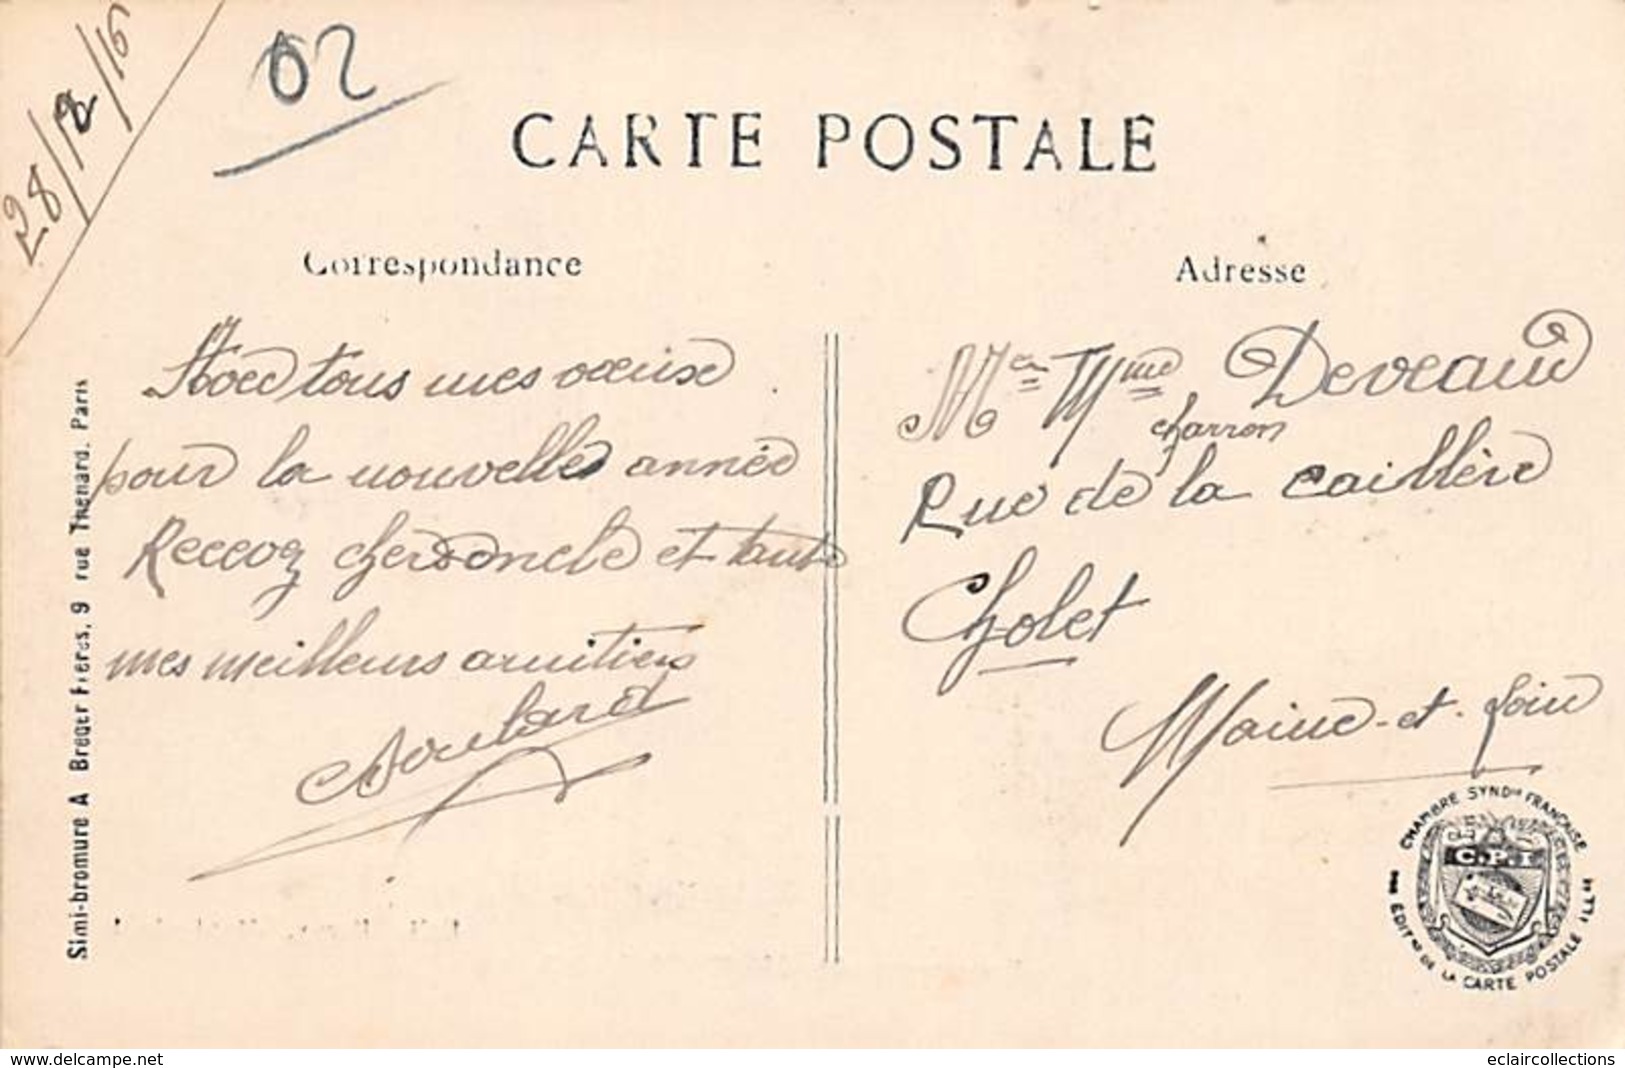 28/12/15
02
CARTE POSTALE
Correspondance
Adresse
Avec tous mes voeuxe
pour la nouvelle année
Recevez cher oncle et tante
mes meilleurs amitiers
Boulard
Mr et Mme Deveaud
charron
Rue de la caillère
Cholet
Maine-et-Loire
Simi-bromure A Breger Frères, 9 rue Thenard. Paris
CHAMBRE SYNDle FRANÇAISE
C.P.I
DES EDITrs DE LA CARTE POSTALE ILLée
www.delcampe.net
eclaircollections